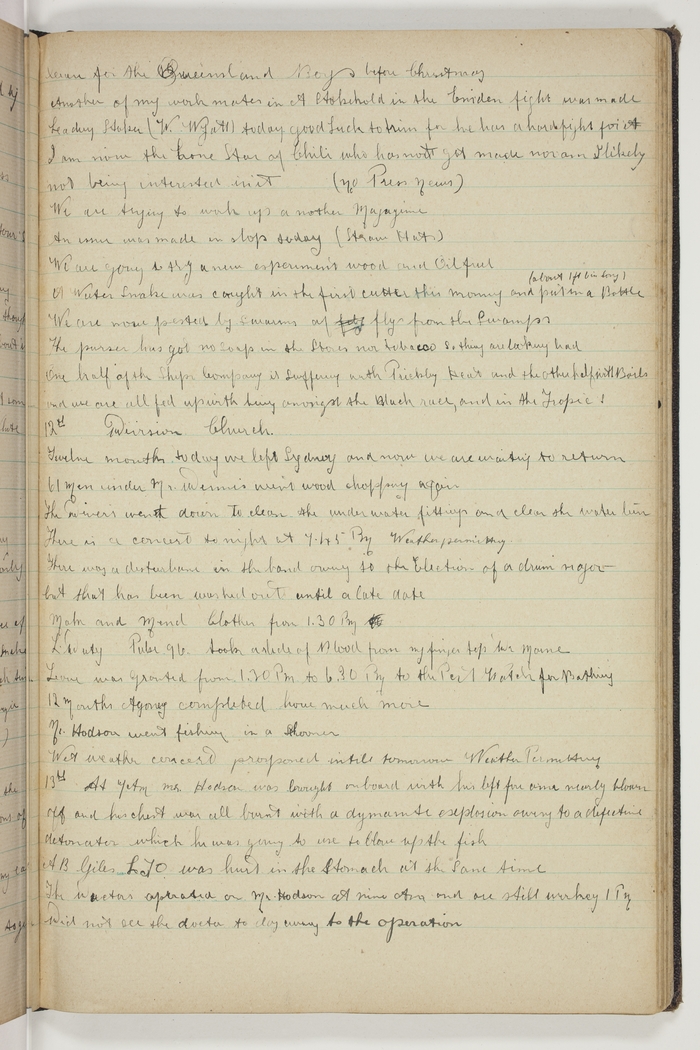 leave for the Queensland Boys before Christmas
Another of my work mates in A Stokehold in the Emden fight was made
Leading Stoker (W. Wyatt) today good Luck to him for he has a hard fight for it
I am now the Lone Star of Chili who has not got made nor am I likely
not being interested in it (No Press News)
We are trying to work up another Magazine
An issue was made in slops today (Straw Hats)
We are going to try a new experiment wood and Oil fuel
(about 1ft 6in long)
A Water Snake was caught in the first cutter this morning and put in a Bottle
We are now pested by swarms of flys from the Swamps
The purser has got no soap in the Stores nor tobacco so they are looking bad
One half of the Ships Company is suffering with Prickly Heat and the other half with Boils
and we are all fed up with being amongst the Black race, and in the Tropic!
12th Division Church.
Twelve months today we left Sydney and now we are waiting to return
61 Men under Mr. Dennis went wood chopping again
The Divers went down to clean the under water fittings and clear the water line
There is a concert tonight at 7.45 Pm Weather permitting.
There was a disturbance in the band owing to the Election of a drum major
but that has been washed out until a late date
Make and Mend Clothes from 1.30 Pm
Pulse 96. took a slide of Blood from my finger tops
Leave was granted from 1.30 Pm to 6.30 Pm to the Port Watch for Bathing
12 Months Agony completed how much more
Mr. Hodson went fishing in a
Wet weather concert postponed until tomorrow Weather Permitting
13th At 7 Am Mr. Hodson was brought onboard with his left fore arm nearly blown
off and his chest was all burnt with a dynamite explosion owing to a defective
detonator which he was going to use to blow up the fish
A B Giles L.T.O. was hurt in the Stomach at the same time
The doctors operated on Mr Hodson at nine Am and are still working 1 Pm
Did not see the doctor to day owing to the operation